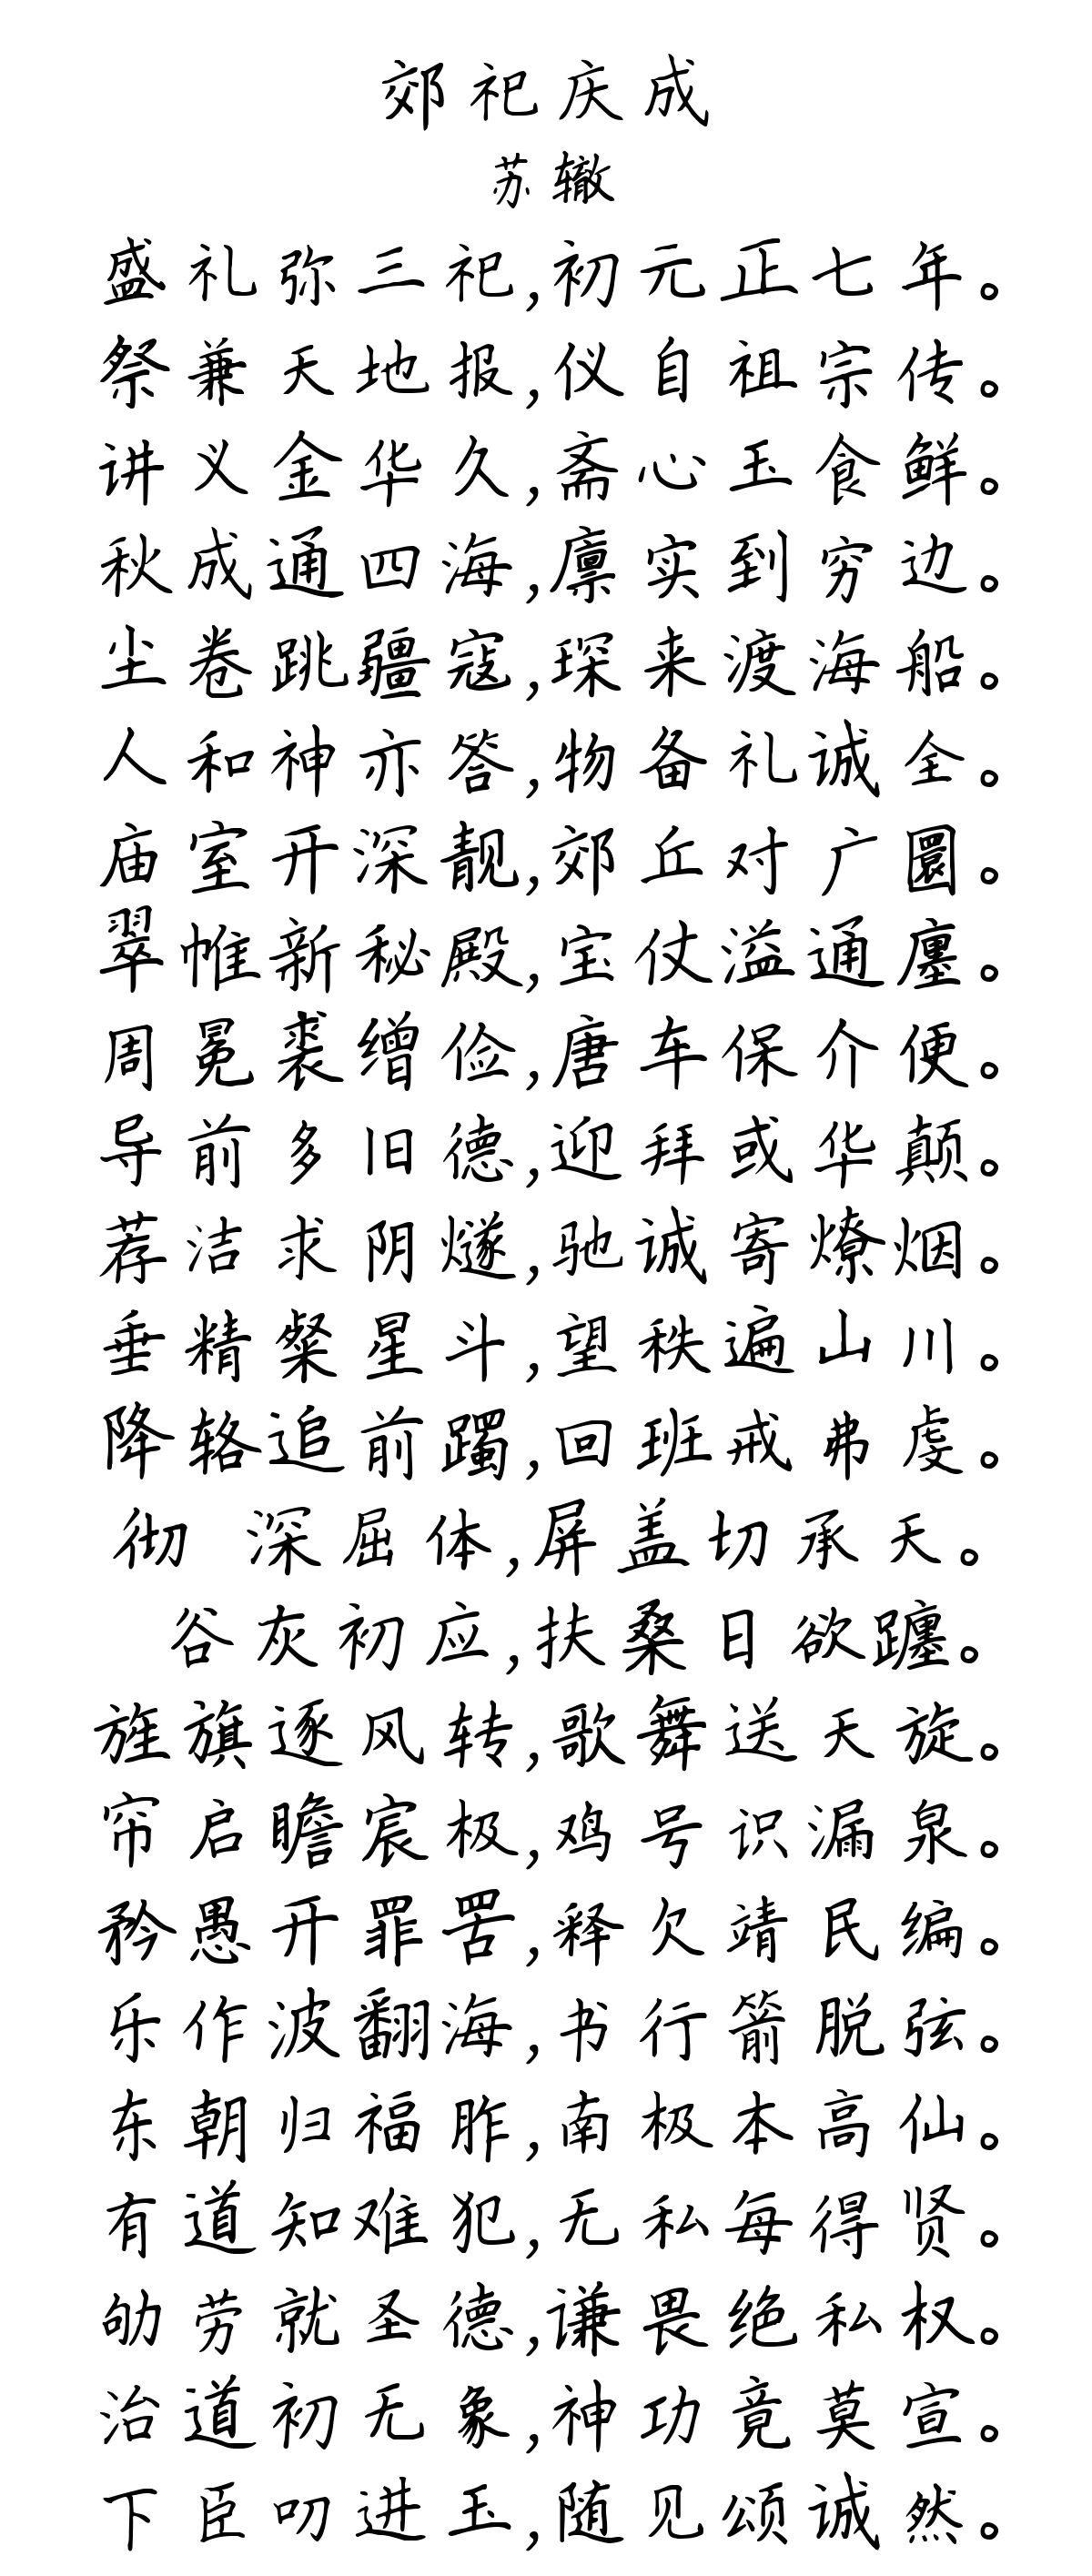 郊祀庆成
苏辙
盛礼弥三祀,初元正七年。
祭兼天地报,仪自祖宗传。
讲义金华久,斋心玉食鲜。
秋成通四海,廪实到穷边。
尘卷跳疆寇,琛来渡海船。
人和神亦答,物备礼诚全。
庙室开深靓,郊丘对广圜。
翠帷新秘殿,宝仗溢通廛。
周冕裘缯俭,唐车保介便。
导前多旧德,迎拜或华颠。
荐洁求阴燧,驰诚寄燎烟。
垂精粲星斗,望秩遍山川。
降辂追前躅,回班戒弗虔。
彻 深屈体,屏盖切承天。
谷灰初应,扶桑日欲躔。
旌旗逐风转,歌舞送天旋。
帘启瞻宸极,鸡号识漏泉。
矜愚开罪罟,释欠靖民编。
乐作波翻海,书行箭脱弦。
东朝归福胙,南极本高仙。
有道知难犯,无私每得贤。
劬劳就圣德,谦畏绝私权。
治道初无象,神功竟莫宣。
下臣叨进玉,随见颂诚然。